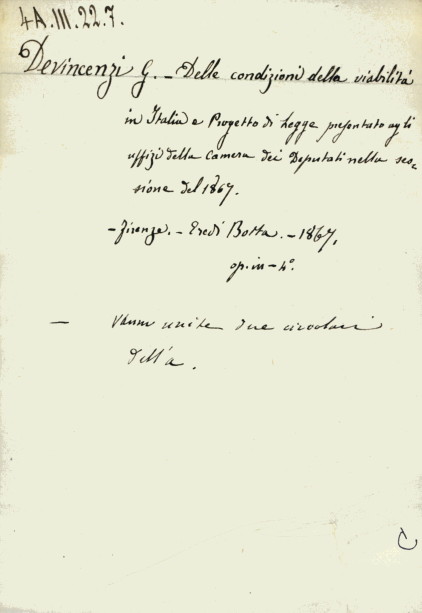 4A.III.22.7.
Devincenzi G. - Delle condizioni della viabilitá
in Italia e Progetto di Legge presentato agli
uffizi della Camera dei Deputati nella ses=
sione del 1867.
- Firenze. - Eredi Botta. - 1867,
op. in - 4°.
— Vanno unite due circolari
dell'a.